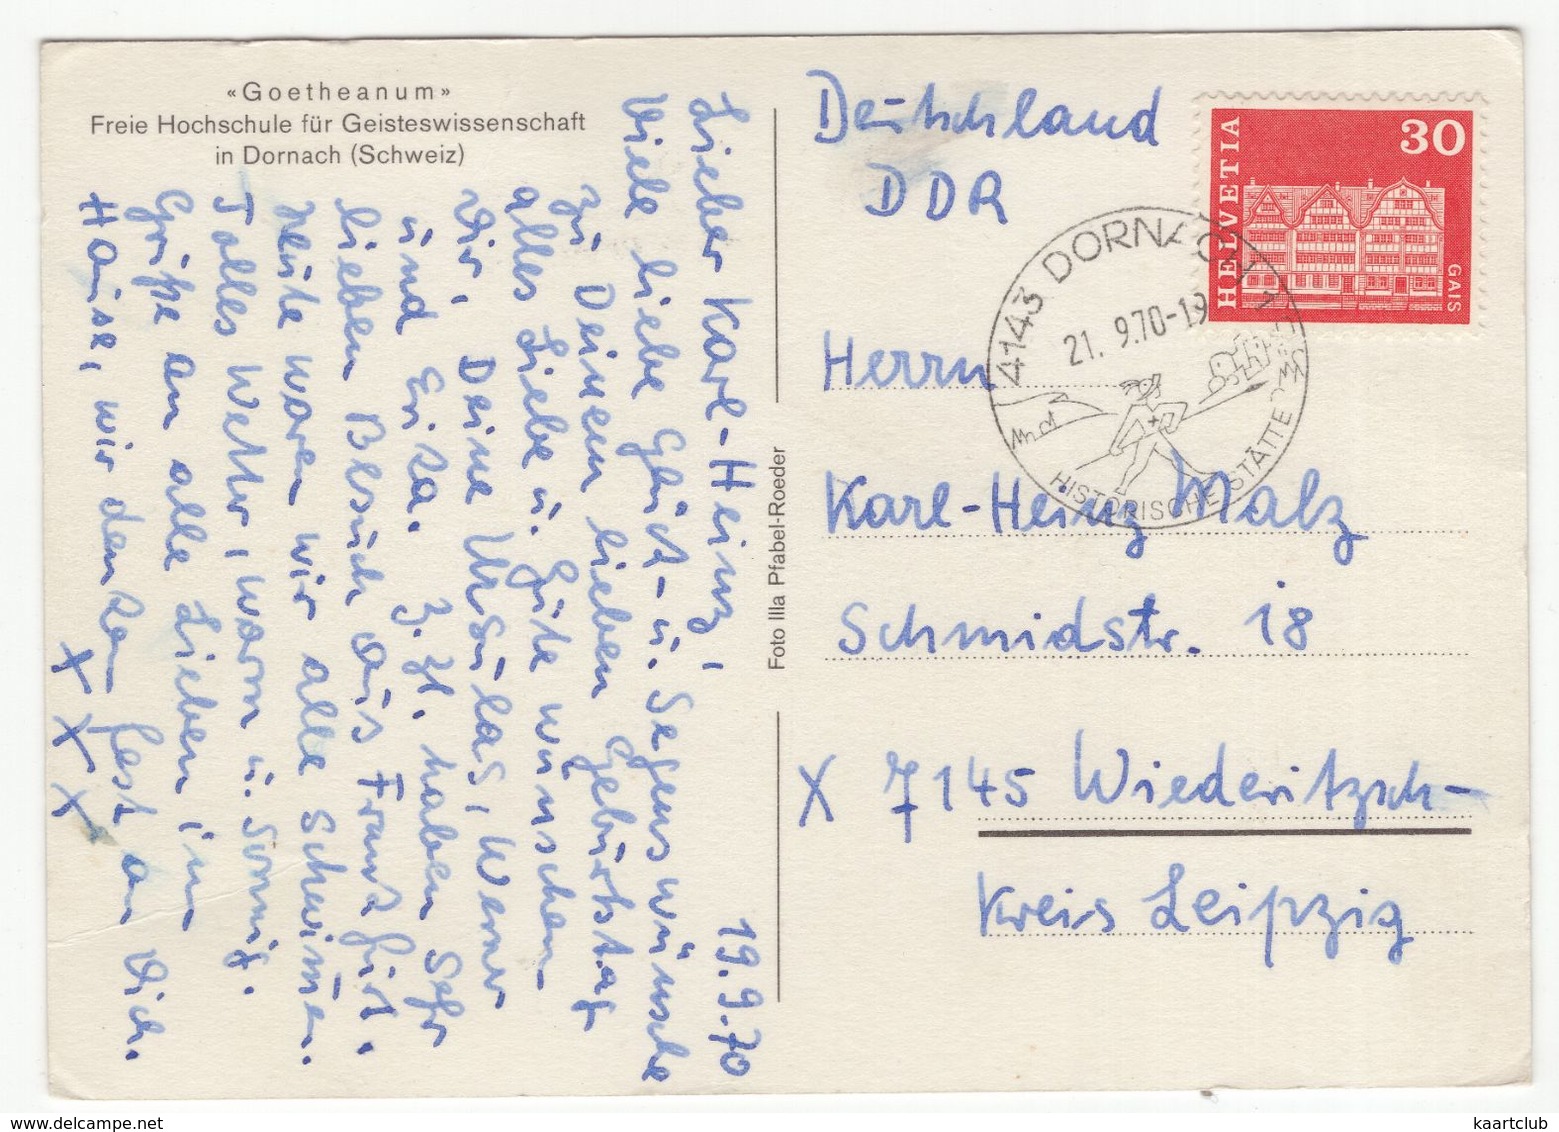 «Goetheanum»
Freie Hochschule für Geisteswissenschaft
in Dornach (Schweiz)
19.9.70
Lieber Karl-Heinz,
Viele liebe Glück- u. Segenswünsche
zu Deinem lieben Geburtstag
alles Liebe u. Gute wünschen
Dir, Deine Ursulas, Werner
und Erika. Z. Zt. haben sehr
lieben Besuch aus Frankfurt.
Heute waren wir alle schwimmen.
Tolles Wetter, warm u. sonnig.
Grüße an alle Lieben im
Hause, wir denken fest an Dich.
X X X
Foto Illa Pfabel-Roeder
Deutschland
DDR
HELVETIA
30
GAIS
4143 DORNACH 1
21. 9.70-19
HISTORISCHE STÄTTE
Herrn
Karl-Heinz Malz
Schmidstr. 18
X 7145 Wiederitzsch-
Kreis Leipzig
kaartclub